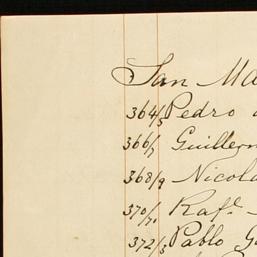 San Ma
364/5 Pedro
366/7 Guillerm
368/9 Nicola
370/71 Raf.
372/3 Pablo G